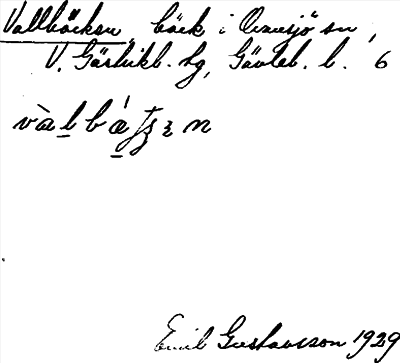 Vallbäcken bäck i Ovansjö sn,
V. Gästrikl. hg, Gävleb. l. 6
Emil Gustavsson 1929